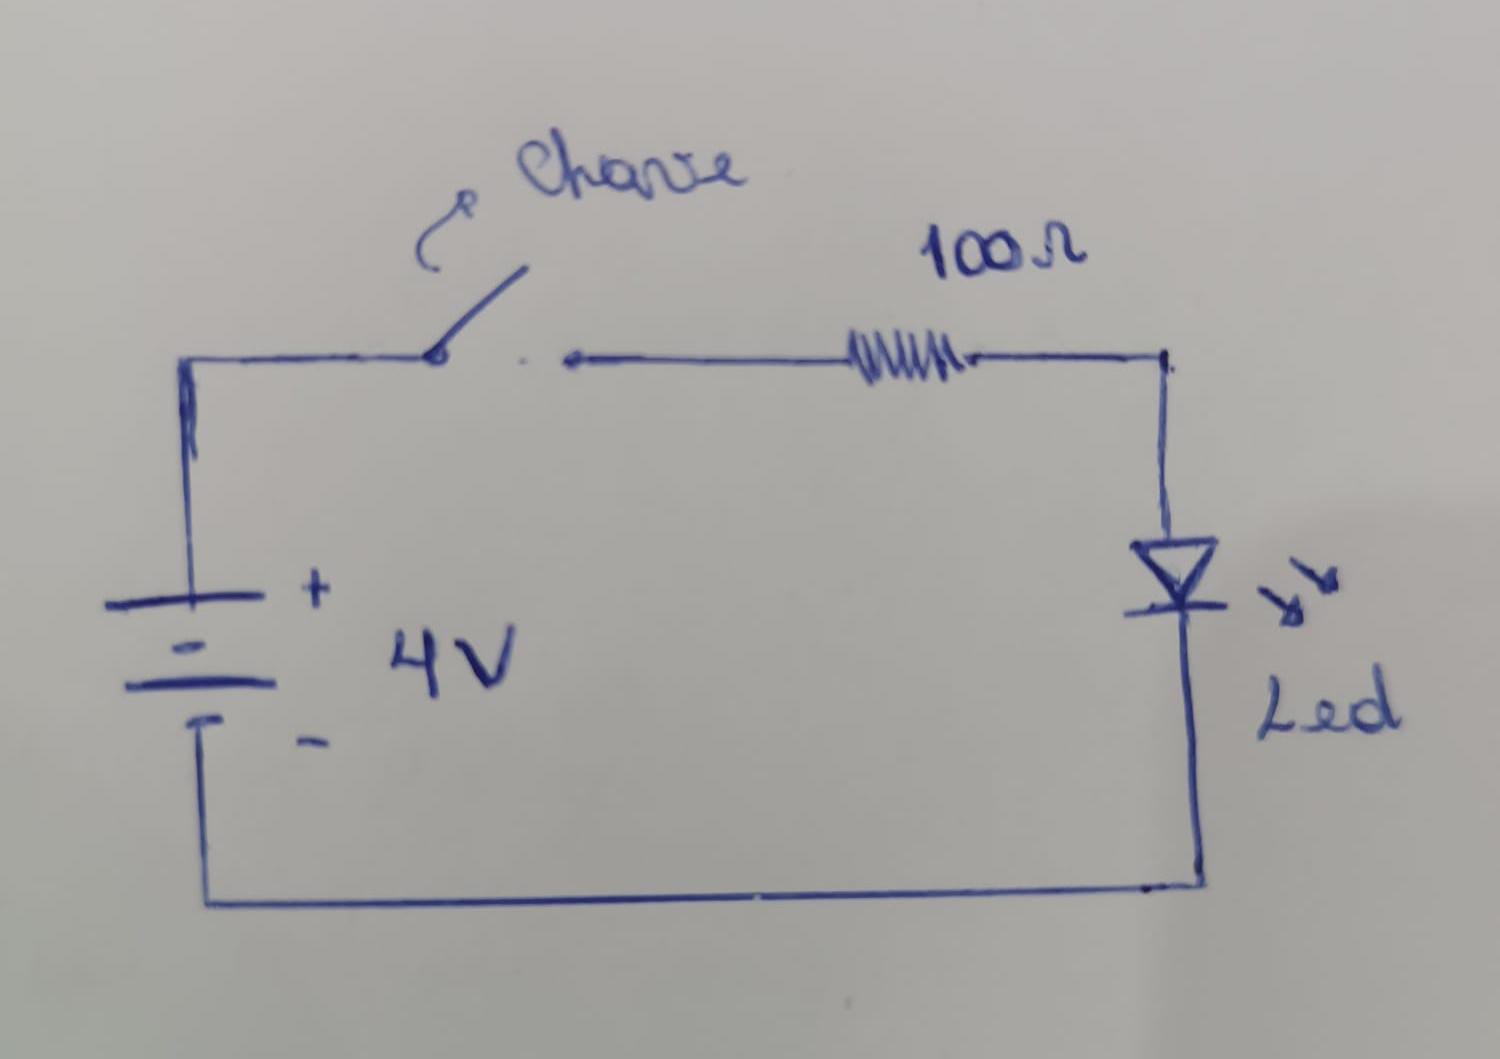 Chave
100Ω
+
4V
-
Led